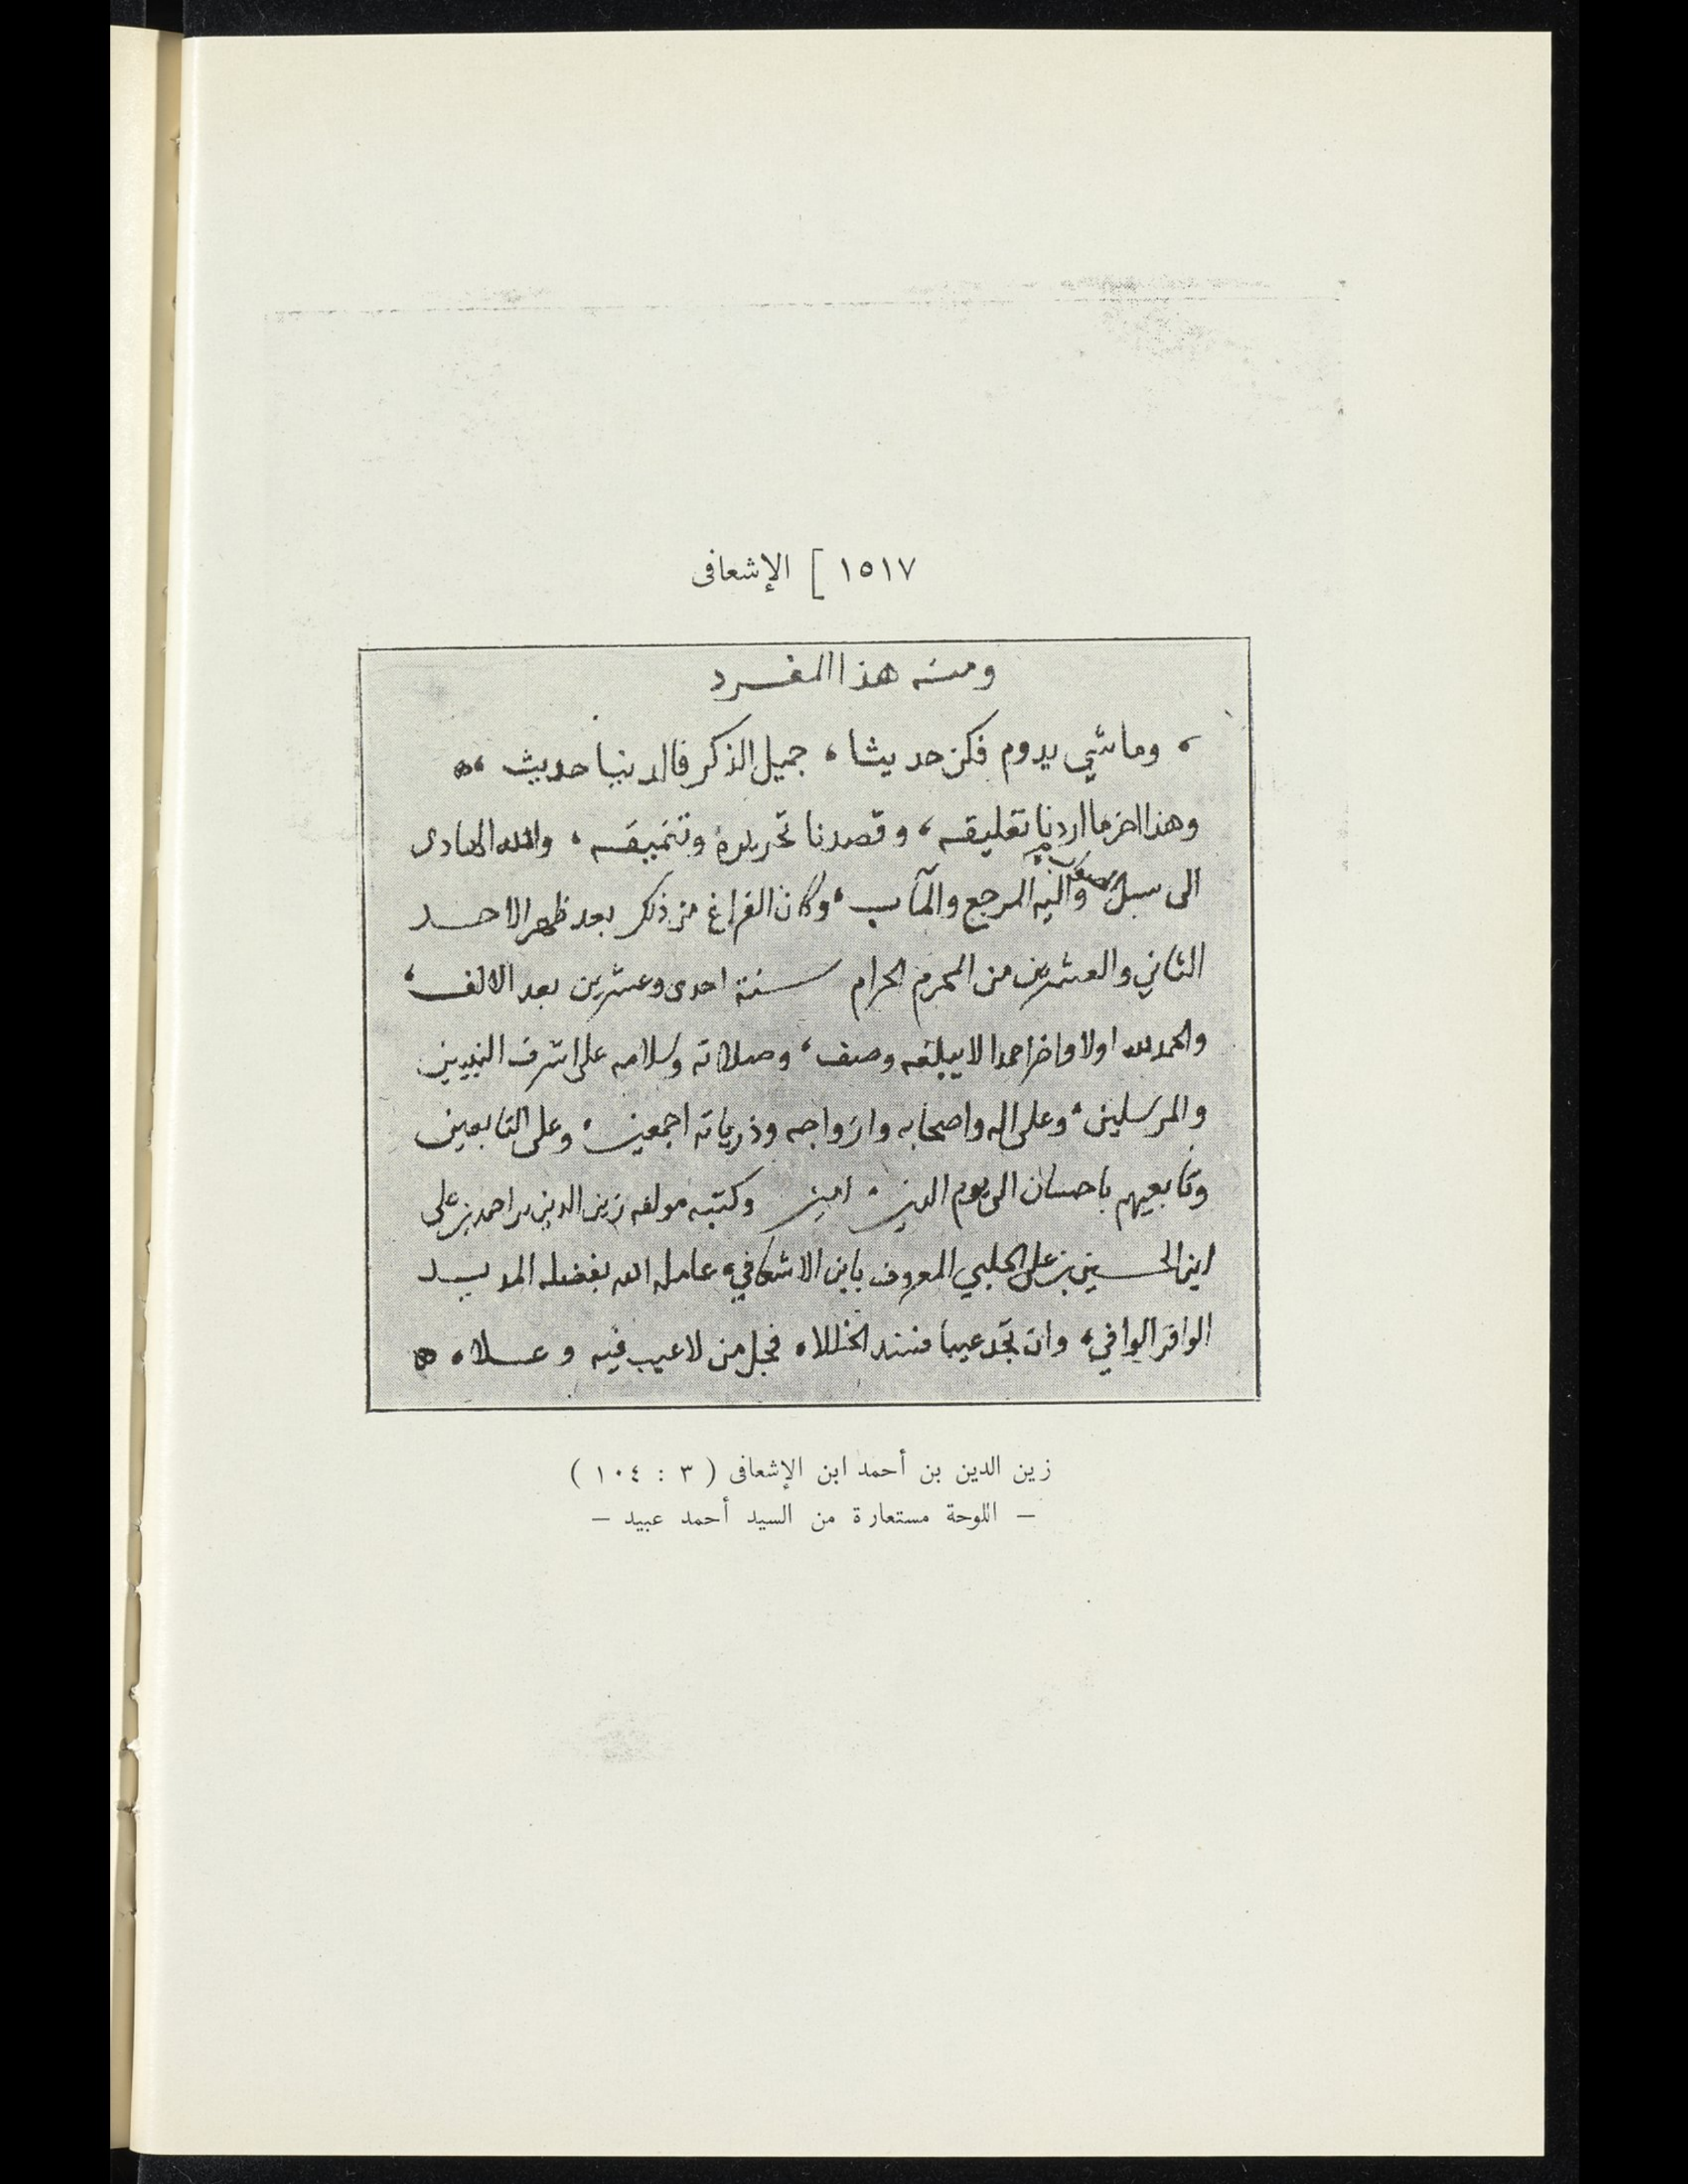 ١٥١٧ ] الإشعافى
ومنه هذا المفرد
، وما شي يدوم فكن حديثا ، جميل الذكر فالدنيا حديث ،ه
وهذا اخر ما اردنا تعليقه ، وقصدنا تحريره وتنميقه ، والله الهادى
الى سبيل واليه المرجع والمآب ، وكان الفراغ من ذلك بعد ظهر الاحد
الثاني والعشرين من المحرم الحرام سنة احدى وعشرين بعد الالف ،
والحمد لله اولا واخرا حمدا لا يبلغه وصف ، وصلاته وسلامه على اشرف النبيين
والمرسلين ، وعلى اله واصحابه وازواجه وذرياته اجمعين ، وعلى التابعين
وتابعيهم باحسان الى يوم الدين . امين وكتبه مولفه زين الدين بن احمد بن على
ابن الحسين بن على الحلبي المعروف بابن الاشعافي ، عامله الله بفضله المديد
الوافر الوافي ، وان تجد عيبا فسد الخللا ه فجل من لا عيب فيه وعلا ه ه
زين الدين بن أحمد ابن الإشعافى ( ٣ : ١٠٤ )
— اللوحة مستعارة من السيد أحمد عبيد —